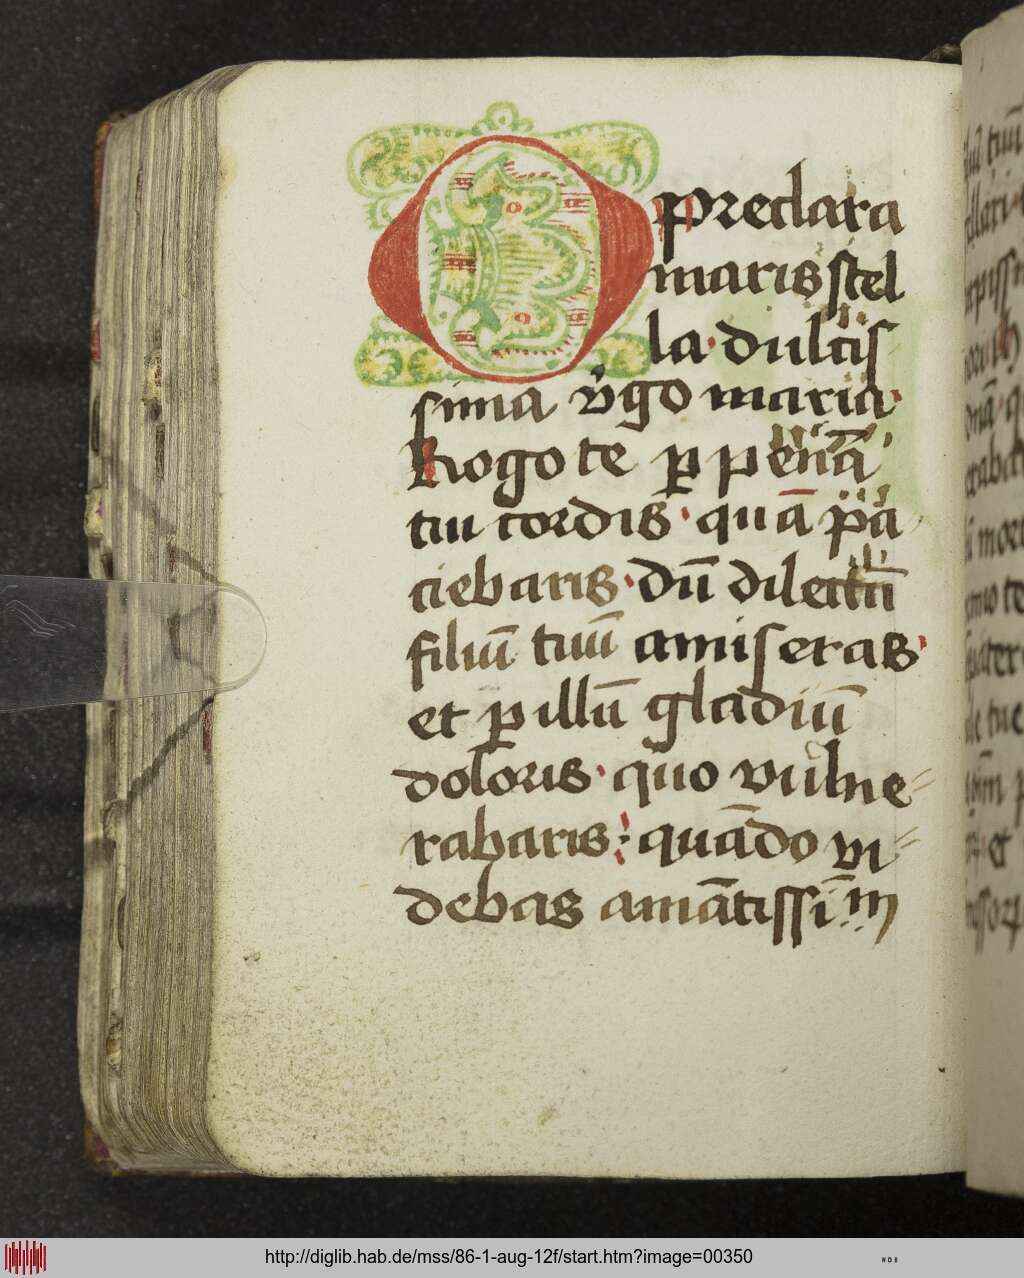 O preclara
maris stel
la · dulcis
sima v̓go maria ·
Rogo te ꝑ penā
tui cordis · quā pa
ciebaris · dū dilectū
filiū tuū amiseras ·
et ꝑ illū gladiū
doloris · quo vulne
rabaris : quādo vi
debas amātissīm
http://diglib.hab.de/mss/86-1-aug-12f/start.htm?image=00350